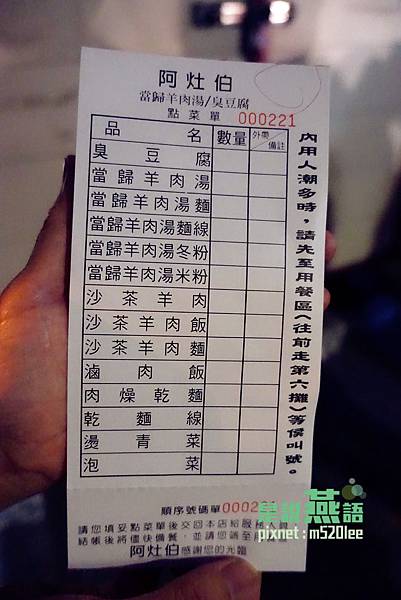 阿灶伯
當歸羊肉湯/臭豆腐
點菜單 000221
品名 數量 外帶/備註
臭豆腐
當歸羊肉湯
當歸羊肉湯麵
當歸羊肉湯麵線
當歸羊肉湯冬粉
當歸羊肉湯米粉
沙茶羊肉
沙茶羊肉飯
沙茶羊肉麵
滷肉飯
肉燥乾麵
乾麵線
燙青菜
泡菜
內用人潮多時，請先至用餐區（往前走第六攤）等侯叫號。
順序號碼單 000221
請您填妥點菜單後交回本店給服
結帳後將儘快備餐，並請您端至
阿灶伯感謝您的光臨
燕語
pixnet:m520lee